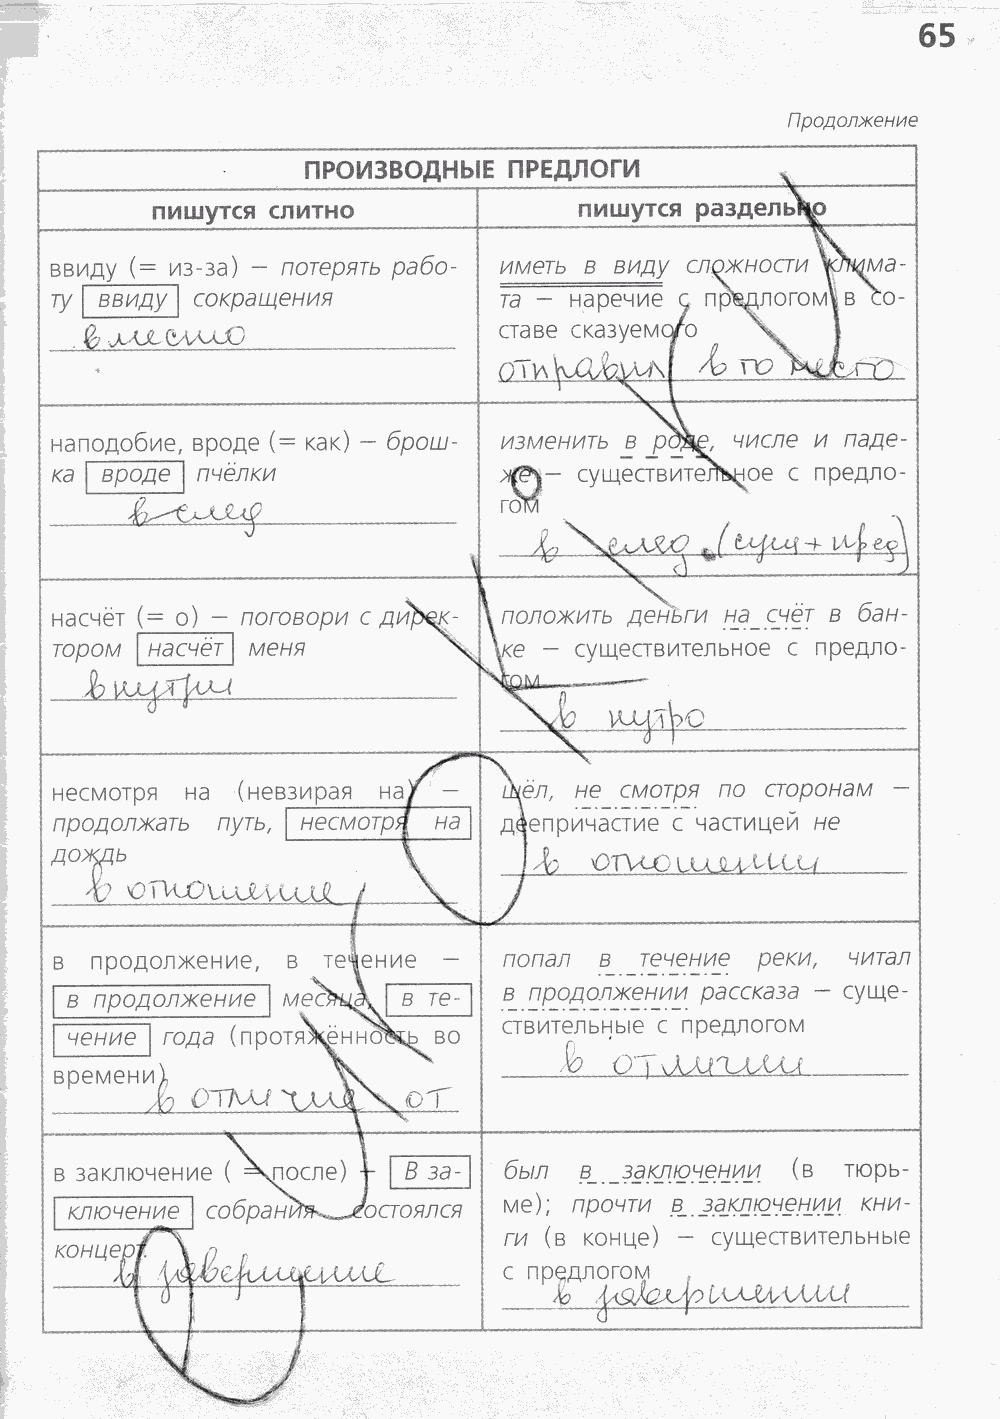 65
Продолжение
ПРОИЗВОДНЫЕ ПРЕДЛОГИ
пишутся слитно
пишутся раздельно
ввиду (= из-за) – потерять рабо-
ту ввиду сокращения
вместо
иметь в виду сложности клима-
та – наречие с предлогом в со-
ставе сказуемого
отправил в то место
наподобие, вроде (= как) – брош-
ка вроде пчёлки
вслед
изменить в роде, числе и паде-
же – существительное с предло-
гом
в след (сущ+пред)
насчёт (= о) – поговори с дирек-
тором насчёт меня
внутри
положить деньги на счёт в бан-
ке – существительное с предло-
гом
в нутро
несмотря на (невзирая на) –
продолжать путь, несмотря на
дождь
в отношение
шёл, не смотря по сторонам –
деепричастие с частицей не
в отношении
в продолжение, в течение –
в продолжение месяца, в те-
чение года (протяжённость во
времени)
в отличие от
попал в течение реки, читал
в продолжении рассказа – суще-
ствительные с предлогом
в отличии
в заключение ( = после) – В за-
ключение собрания состоялся
концерт.
в завершение
был в заключении (в тюрь-
ме); прочти в заключении кни-
ги (в конце) – существительные
с предлогом
в завершении